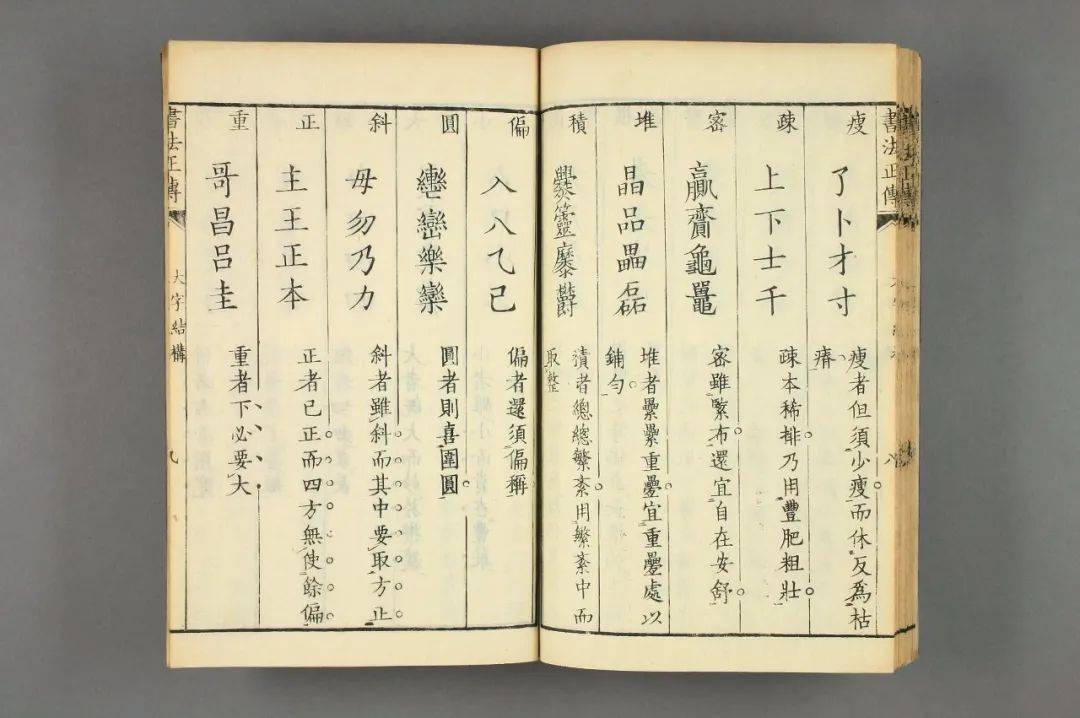 書法正傳
瘦
了卜才寸
瘦者但須少瘦而休反爲枯
瘠
疎
上下士千
疎本稀排乃用豐肥粗壯
密
贏齎龜鼉
密雖緊布還宜自在安舒
堆
晶品畾磊
堆者纍纍重疊宜重疊處以
鋪勻
積
爨靈麋鬱
積者總總繁紊用繁紊中而
取整
偏
入八乙己
偏者還須偏稱
圓
巒樂欒
圓者則喜圍圓
斜
毋勿乃力
斜者雖斜而其中要取方正
正
主王正本
正者已正而四方無使餘偏
重
哥昌呂圭
重者下必要大
書法正傳
大字結構
九